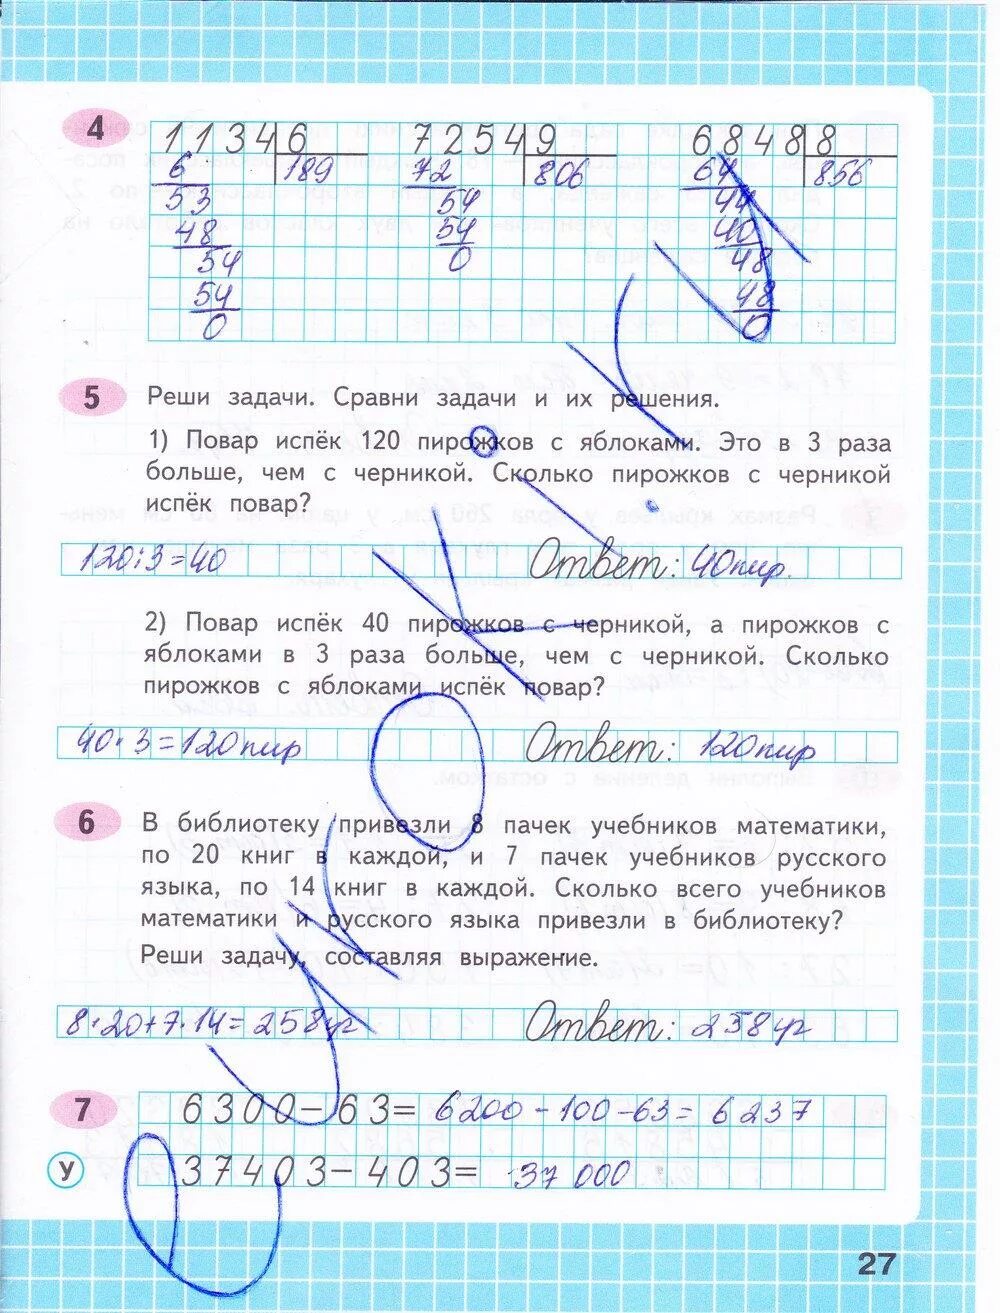 4
1134 6
6 189
53
48
54
54
0
7254 9
72 806
54
54
0
6848 8
64 856
44
40
48
48
0
5 Реши задачи. Сравни задачи и их решения.
1) Повар испёк 120 пирожков с яблоками. Это в 3 раза
больше, чем с черникой. Сколько пирожков с черникой
испёк повар?
120:3=40 Ответ: 40пир.
2) Повар испёк 40 пирожков с черникой, а пирожков с
яблоками в 3 раза больше, чем с черникой. Сколько
пирожков с яблоками испёк повар?
40·3=120пир Ответ: 120пир
6 В библиотеку привезли 8 пачек учебников математики,
по 20 книг в каждой, и 7 пачек учебников русского
языка, по 14 книг в каждой. Сколько всего учебников
математики и русского языка привезли в библиотеку?
Реши задачу, составляя выражение.
8·20+7·14=258уч Ответ: 258уч
7 6300-63= 6200-100-63=6237
У 37403-403= 37000
27